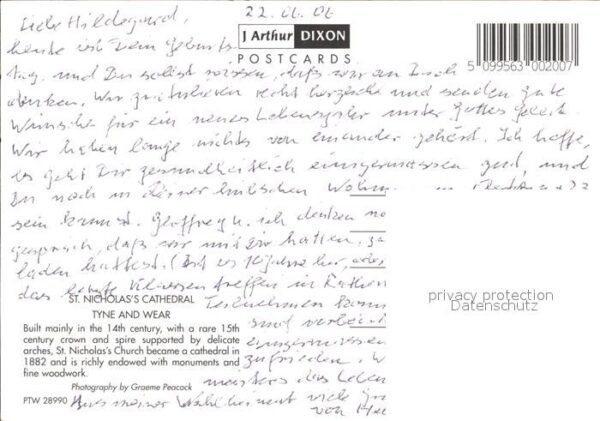 22.06.06
Liebe Hildegard,
J Arthur DIXON
POSTCARDS
heute ist Dein Geburts-
tag, und Du sollst wissen, dass wir an Dich
5 099563 002007
denken. Wir gratulieren recht herzlich und senden gute
Wünsche für ein neues Lebensjahr unter Gottes Geleit.
Wir haben lange nichts von einander gehört. Ich hoffe,
es geht Dir gesundheitlich einigermassen gut, und
Du noch in Deiner hübschen Wohn
sein kannst. Geoffrey u. ich denken no
gespräch, dass wir mit Dir hatten, 
laden hattest. (Ist es 10 Jahre her, oder
das
treffen in
ST. NICHOLAS'S CATHEDRAL
TYNE AND WEAR
Teilnehmen kann
sind
Built mainly in the 14th century, with a rare 15th
century crown and spire supported by delicate
arches, St. Nicholas's Church became a cathedral in
1882 and is richly endowed with monuments and
fine woodwork.
einigermassen
zufrieden. W
meistens das Leben
Photography by Graeme Peacock
PTW 28990
Aus meiner Wahlheimat viele
von
privacy protection
Datenschutz